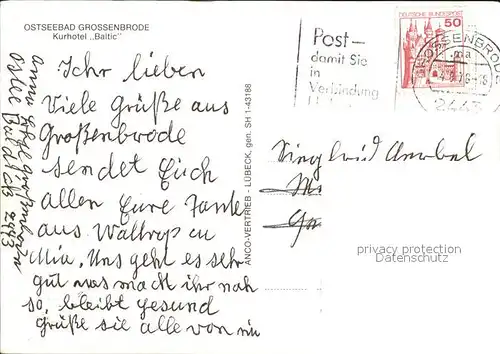 OSTSEEBAD GROSSENBRODE
Kurhotel „Baltic"
Ihr lieben
Viele Grüße aus
Großenbrode
sendet Euch
allen Eure Tante
aus Waltrop
Mia, Uns geht es sehr
gut was macht ihr noh
so, bleibt gesund
grüße sie alle von
2443
ANCO-VERTRIEB - LÜBECK, gen. SH 1-43188
Post–
damit Sie
in
Verbindung
DEUTSCHE BUNDESPOST
50
GROSSENBRODE
2443
Siegfried
privacy protection
Datenschutz